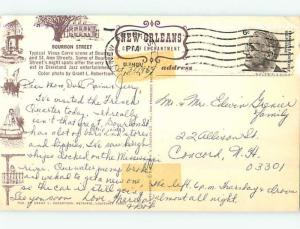 BOURBON STREET
Typical Vieux Carre scene at Bourbon
and St. Ann Streets. Some of Bourbon
Street's night spots offer the very
best in Dixieland Jazz entertainment.
Color photo by Grant L. Robertson
NEW ORLEANS
ENCHANTMENT
PM
address
Dear Mom, Dad,
I've visited the French
Quarter today. It really
isn't that great. Bourbon St.
has a lot of bars and stores
and hippies. I've saw
ships docked on the Mississippi
river. Our water pump broke
and we had to get a new one
so the car is still going.
See you soon Love
Mr. & Mrs.
Family
22 Allison St.
Concord, N.H.
03301
We left 6 p.m. Thursday & drove
almost all night